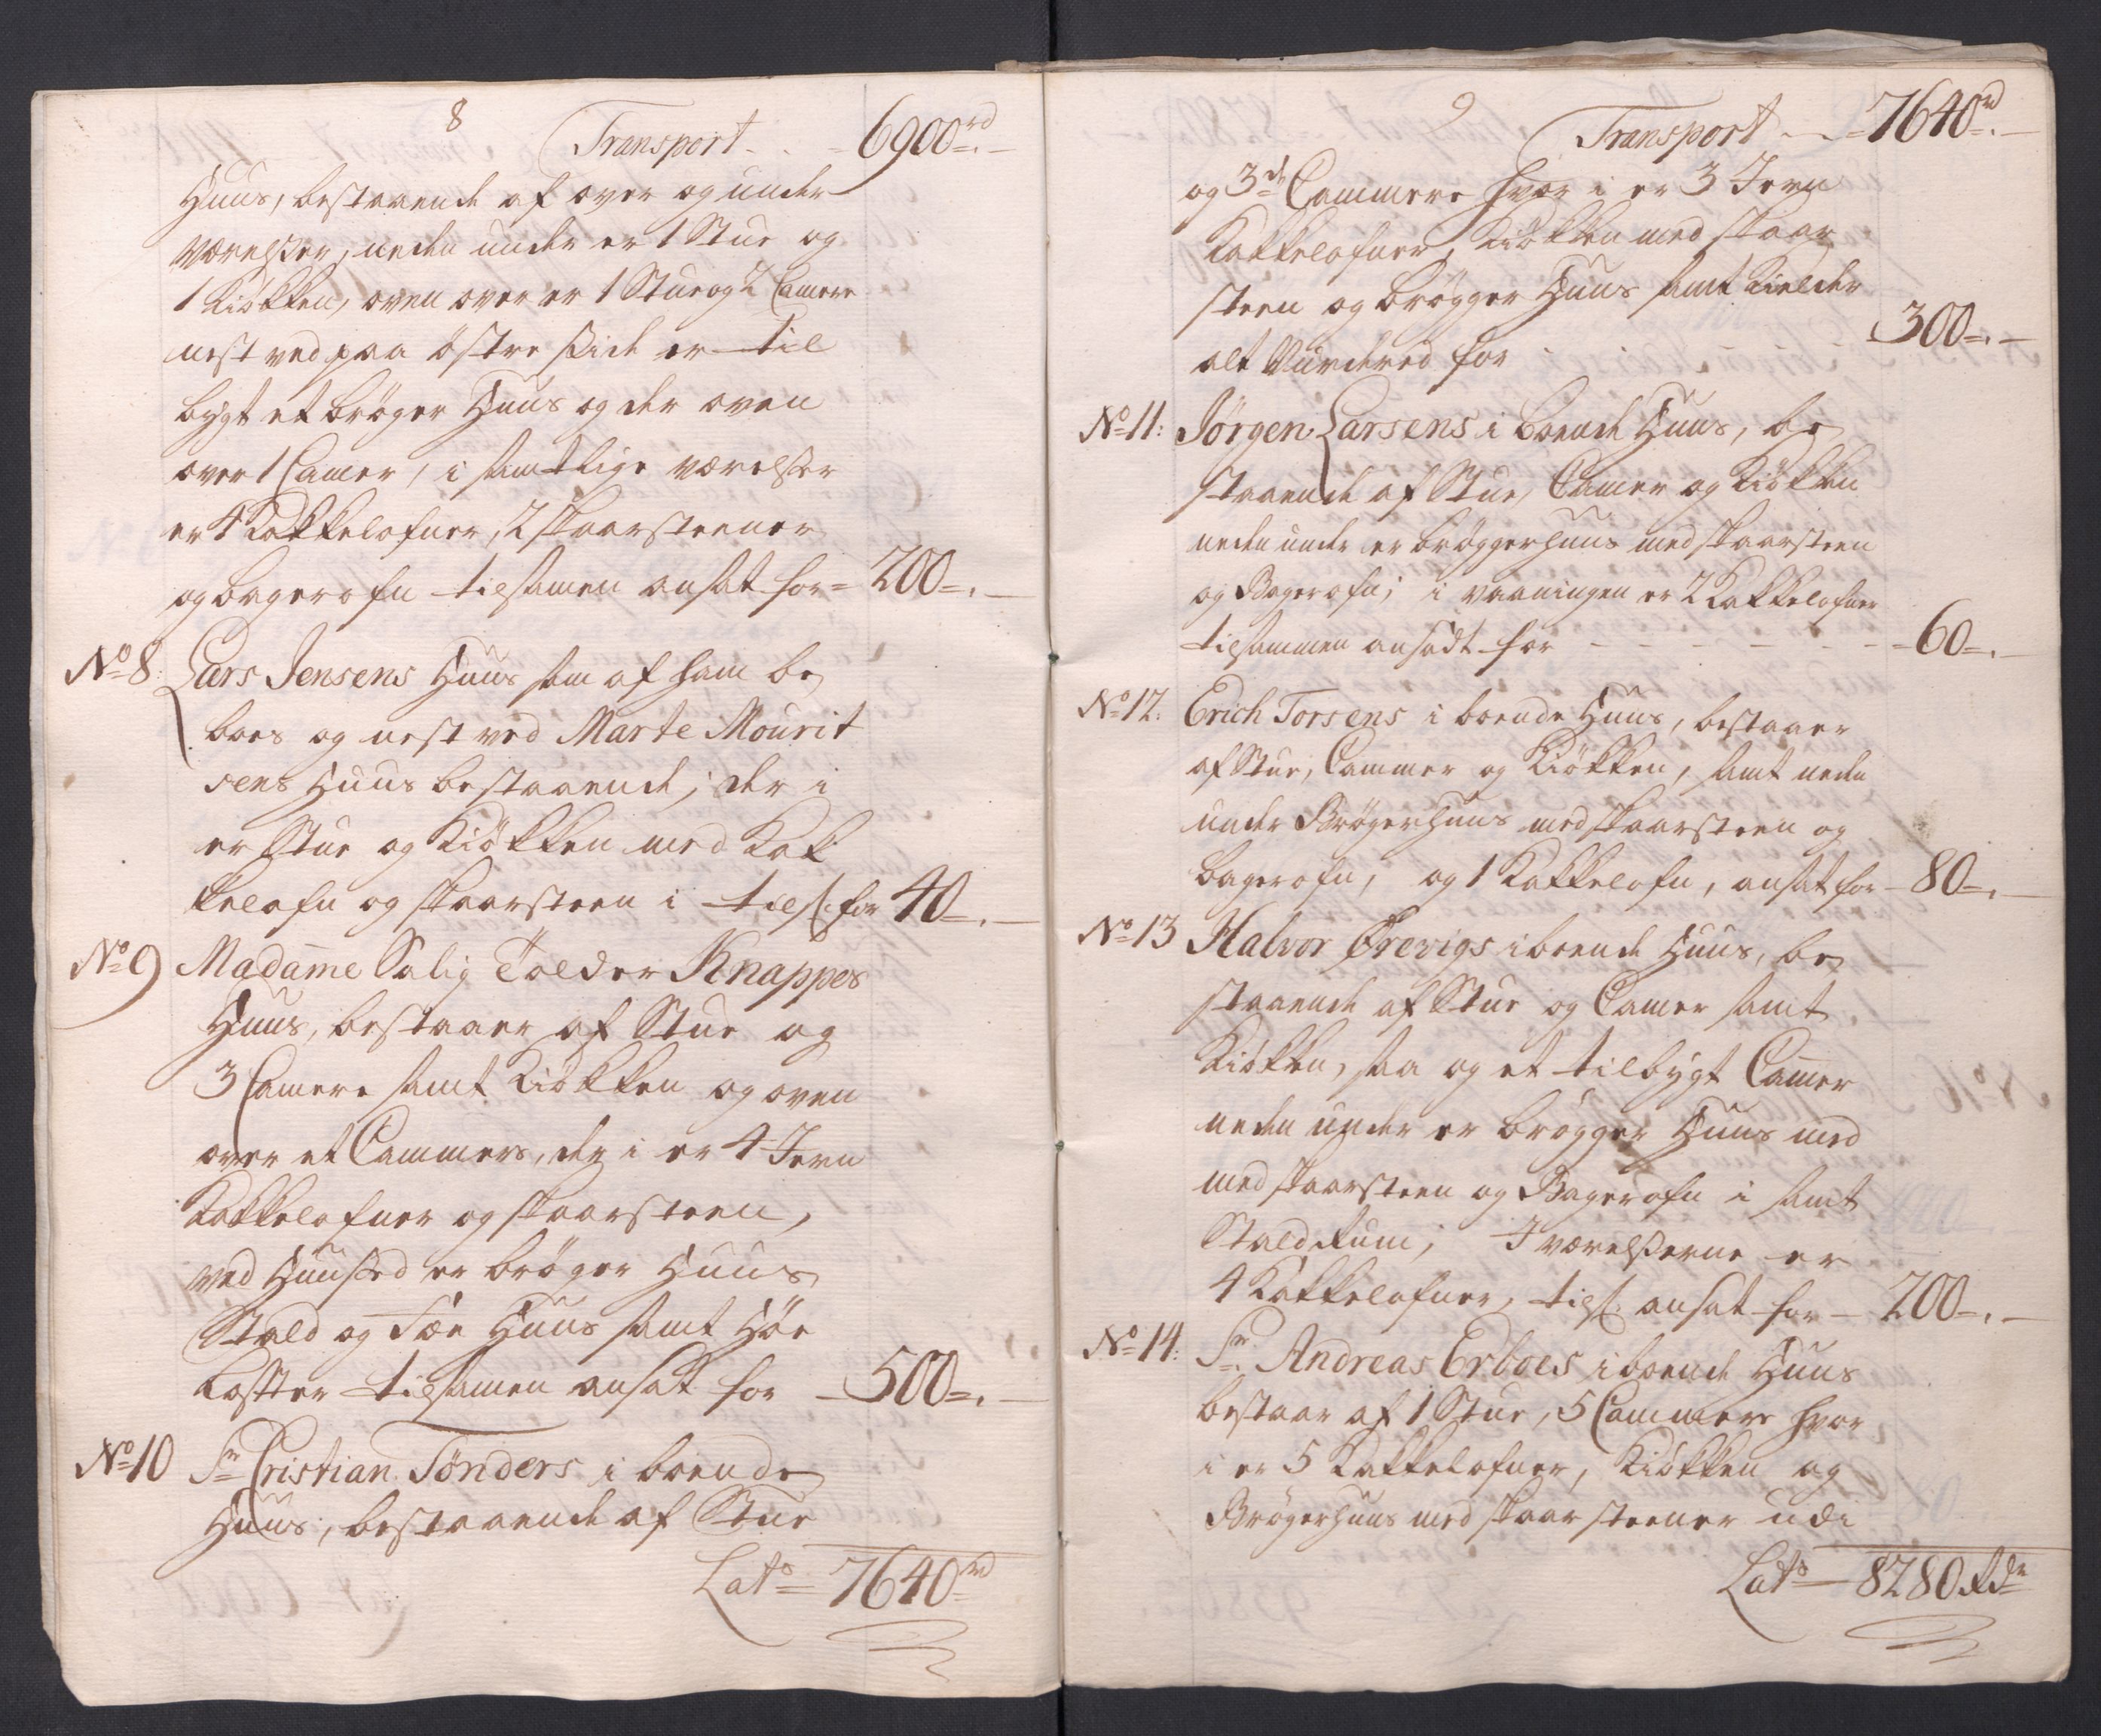 8
Transport - - 6900rd
Huus, bestaaende af over og under
værelser, neden under er 1 Stue og
1 Kiökken, oven over er 1 Stue og 2 Camere
nest ved paa östre side er til
bygt et bröger Huus og der oven
over 1 Camer, i samtlige værelser
er 4 Kakkelofner, 2 skaarsteener
og bagerofn tilsamen ansat for = 200 =.
No 8: Lars Jensens Huus som af ham be
boes og nest ved Marte Mourit
sens Huus bestaaende; der i
er Stue og Kiökken med Kak
kelofn og skaarsteen i tils: for 40 =.
No 9 Madame Salig Tolder Knappes
Huus, bestaaer af Stue og
3 Camere samt Kiökken og oven
over et Cammers, der i er 4 Jern
Kakkelofner og skaarsteen,
ved Huused er bröger Huus
Stald og Fæe Huus samt Höe
Loftter tilsamen ansat for 500 =.
No 10 Sr Cristian Tönders i boende
Huus, bestaaende af Stue
Lats = 7640rd
9
Transport - = 7640rd
og 3de Cammere hvor i er 3 Jern
Kakkelofner, Kiökken med skaar
steen og brögger Huus samt Kielder
alt Vurdered for 300 =.
No 11: Jörgen Larsens i boende Huus, be
staaende af Stue, Camer og Kiökken
neden under er bröggerhuus med skaarsteen
og Bagerofn; i vaaningen er 2 Kakkelofner
tilsammen ansadt for - - - - - - = 60 =.
No 12: Erich Torsens i boende Huus, bestaaer
af Stue, Cammer og Kiökken, samt neden
under Brögerhuus med skaarsteen og
bagerofn, og 1 Kakkelofn, ansat for - 80 =.
No 13 Halvor Örevigs iboende Huus, be
staaende af Stue og Camer samt
Kiökken, saa og et tilbygt Camer
neden under er brögger Huus med
med skaarsteen og Bagerofn i samt
Stald Rum; I værelserne er
4 Kakkelofner, tils: ansat for - 200 =.
No 14: Sr. Andreas Erboes iboende Huus
bestaar af 1 Stue, 5 Cammere hvor
i er 5 Kakkelofner, Kiökken og
Brögerhuus med skaarsteener udi
Lats - 8280 Rdr